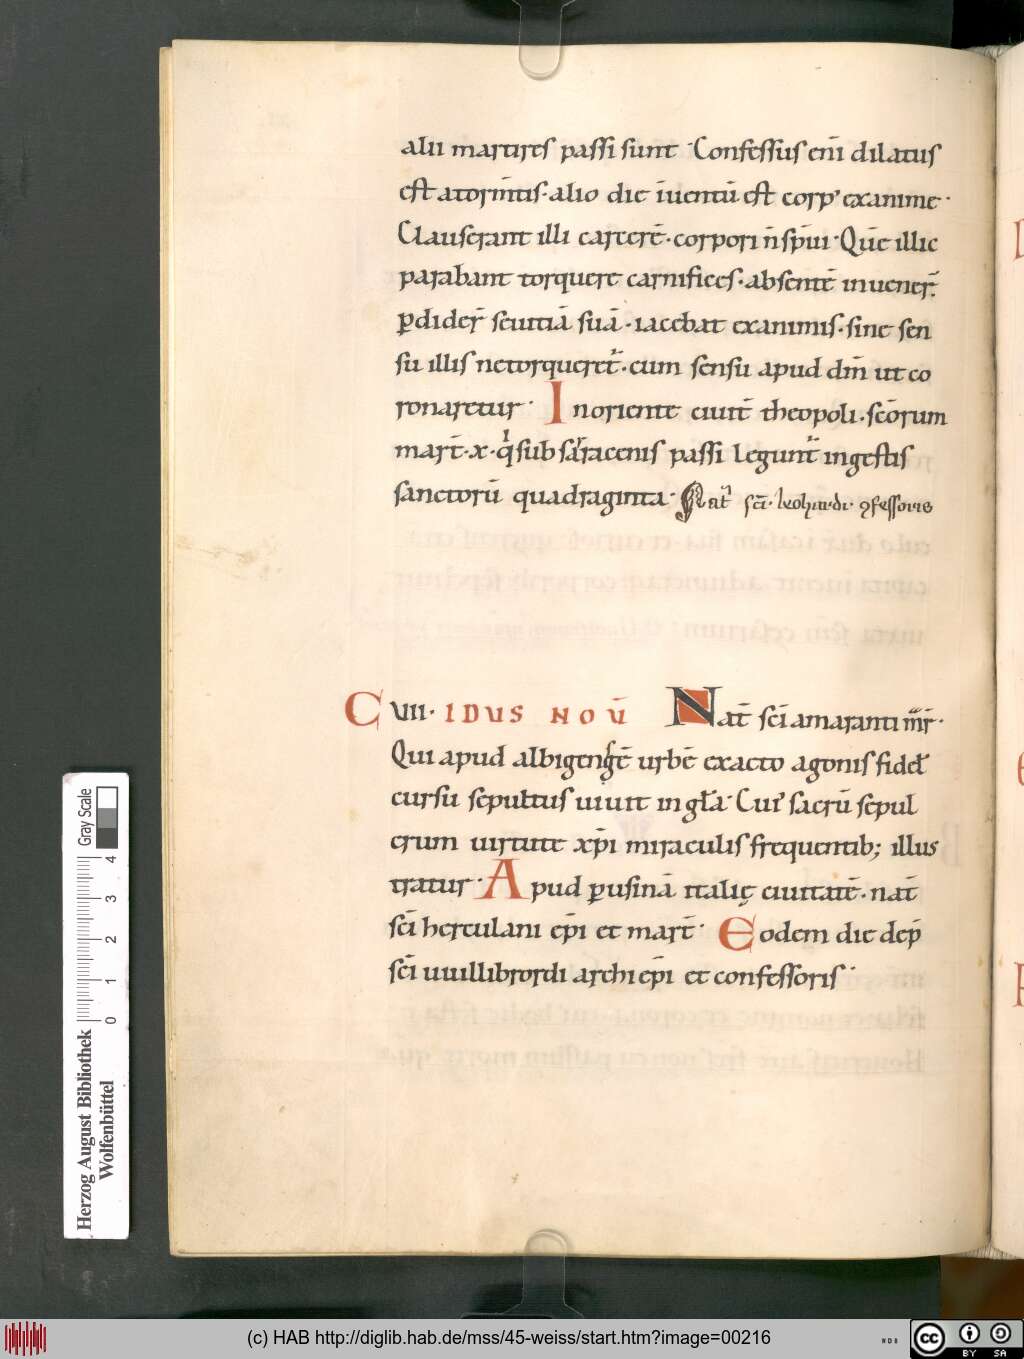 alii martires passi sunt · Confessus em̄ dilatus
est atorm̄tis · alio die īuentū est corpꝰ exanime ·
Clauserant illi carcerē · corpori n̄ sp̄ui · Qūe illic
parabant torquere carnifices · absentē inuener̄ ·
ꝑdider̄ seuitiā suā · iacebat exanimis · sine sen
su illis netorqueret᷑ · cum sensu apud dm̄ ut co
ronaretur · In oriente ciuit̄ theopoli · sc̄orum
mart̄ · x · qͥ sub sarracenis passi legunt᷑ in gestis
sanctorū quadraginta · Nat̄ sc̄i · leohardi · ꝯfessoris
C VII · IDUS NOU̅ Nat̄ sc̄i amaranti mr̄ ·
Qui apud albigensē urbē exacto agonis fidel̄
cursu sepultus uiuit in gl̄a · Cuiꝰ sacrū sepul
crum uirtute xp̄i miraculis frequentib; illus
tratur · Apud ꝑusinā italię ciuitatē · nat̄
sc̄i herculani ep̄i et mart̄ · Eodem die dep̄
sc̄i uuillibrordi archiep̄i et confessoris ·
Herzog August Bibliothek
Wolfenbüttel
Gray Scale
0 1 2 3 4
(c) HAB http://diglib.hab.de/mss/45-weiss/start.htm?image=00216
cc BY SA